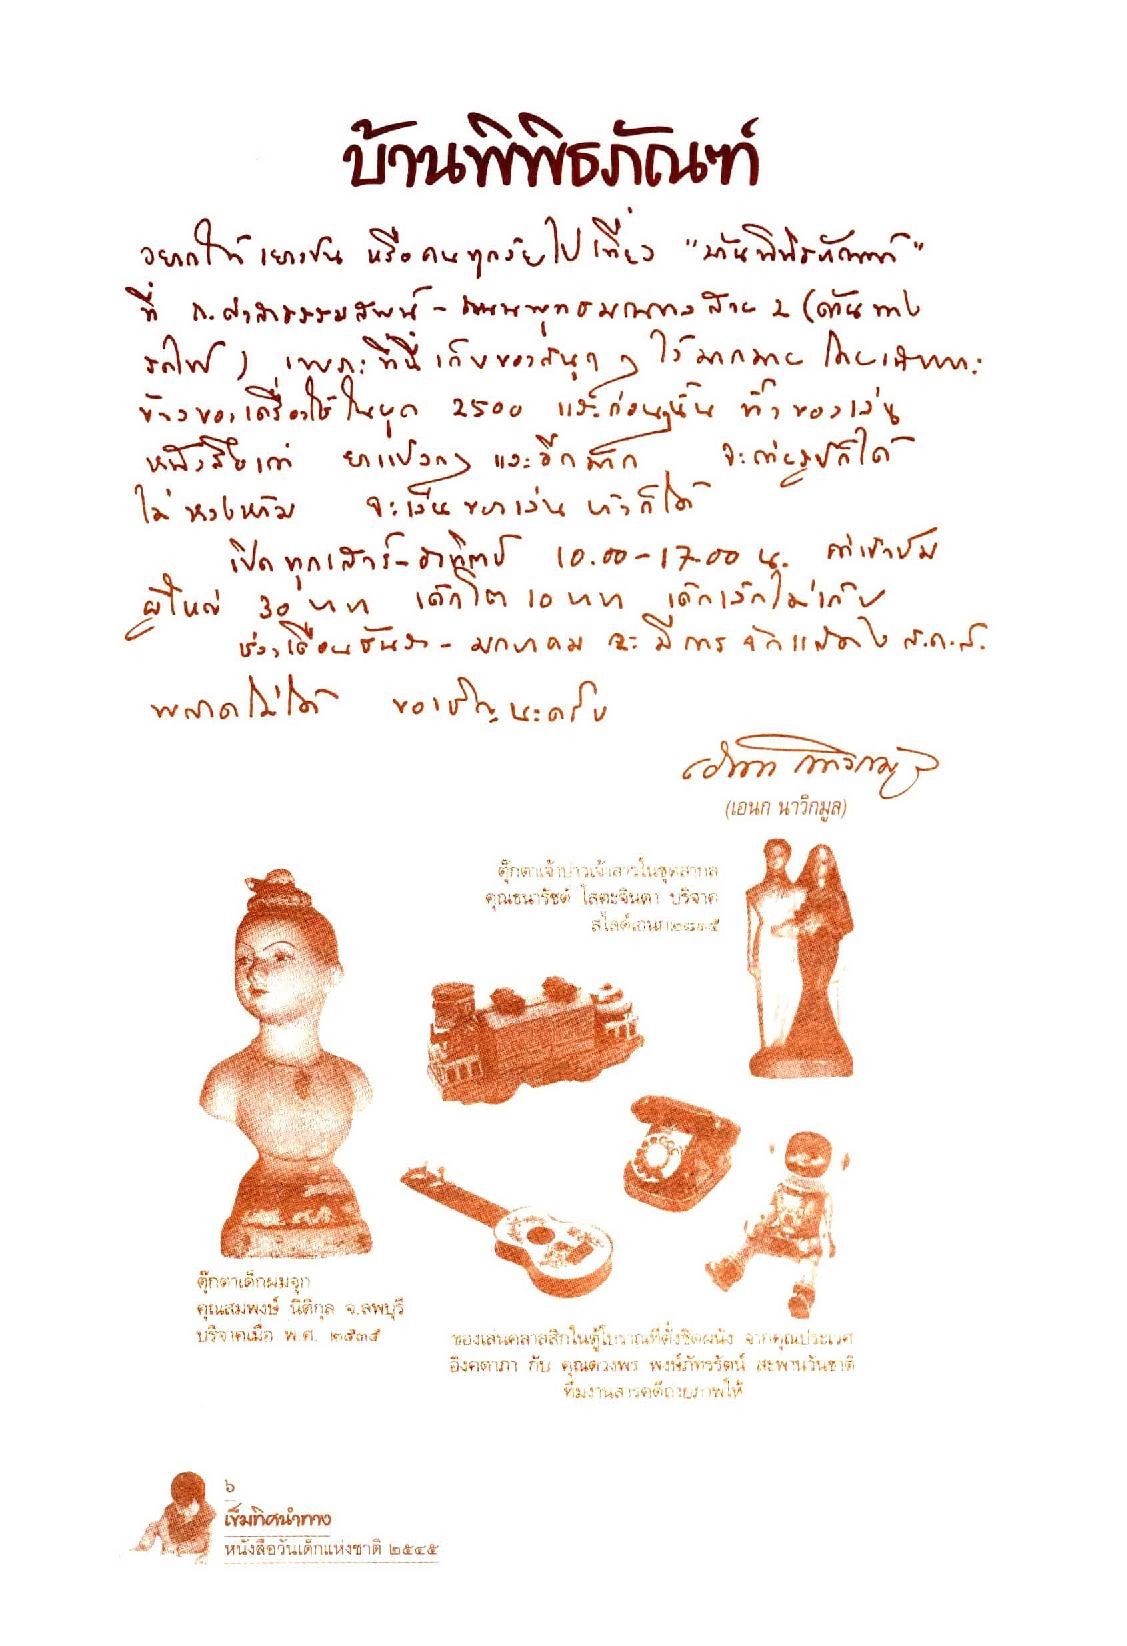 บ้านพิพิธภัณฑ์
อยากให้ เยาวชน หรือคนทุกวัยไปเที่ยว "บ้านพิพิธภัณฑ์"
ที่ ถ.ศาลาธรรมสพน์ - ถนนพุทธมณฑลสาย 2 (ด้านทาง
รถไฟ) เพราะที่นี่เก็บของสนุกๆ ไว้มากมาย โดยเฉพาะ
ข้าวของเครื่องใช้ในยุค 2500 และก่อนนั้น ทั้งของเล่น
หนังสือเก่า ยาแปลกๆ และอีกมาก จะถ่ายรูปก็ได้
ไม่หวงห้าม จะเรียน ขาเล่น ก็ได้
เปิดทุกเสาร์-อาทิตย์ 10.00-17.00 น. ค่าเข้าชม
ผู้ใหญ่ 30 บาท เด็กโต 10 บาท เด็กเล็กไม่เก็บ
ช่วงเดือนธันวา - มกราคม จะมีการจัดแสดง ส.ค.ส.
พลาดไม่ได้ ขอเชิญนะครับ
(เอนก นาวิกมูล)
ตุ๊กตาเจ้าบ่าวเจ้าสาวในชุดสากล
คุณธนารัชต์ โสตะจินดา บริจาค
ตุ๊กตาเด็กผมจุก
คุณสมพงษ์ นิติกุล จ.ลพบุรี
บริจาคเมื่อ พ.ศ. ๒๕๓๕
ของเล่นคลาสสิกในตู้โบราณที่ตั้งชิดผนัง จากคุณประเวศ
อิงคดาภา กับ คุณดวงพร พงษ์ภัทรรัตน์ สะพานวันชาติ
ทีมงานสารคดีถ่ายภาพให้
๖
เข็มทิศนำทาง
หนังสือวันเด็กแห่งชาติ ๒๕๔๕